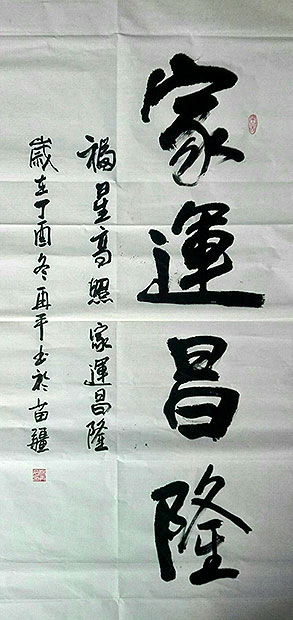 家運昌隆
福星高照 家運昌隆
歲在丁酉冬再平书於苗疆